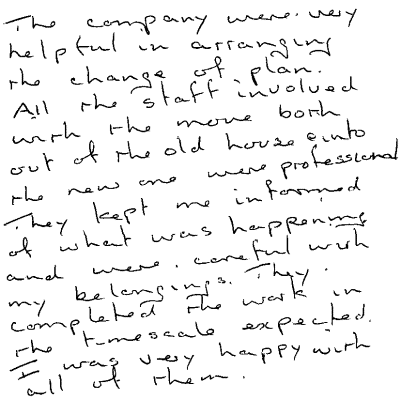 The company were very
helpful in arranging
the change of plan.
All the staff involved
with the move both
out of the old house & into
the new one were professional
They kept me informed
of what was happening
and were careful with
my belongings. They
completed the work in
the timescale expected.
I was very happy with
all of them.